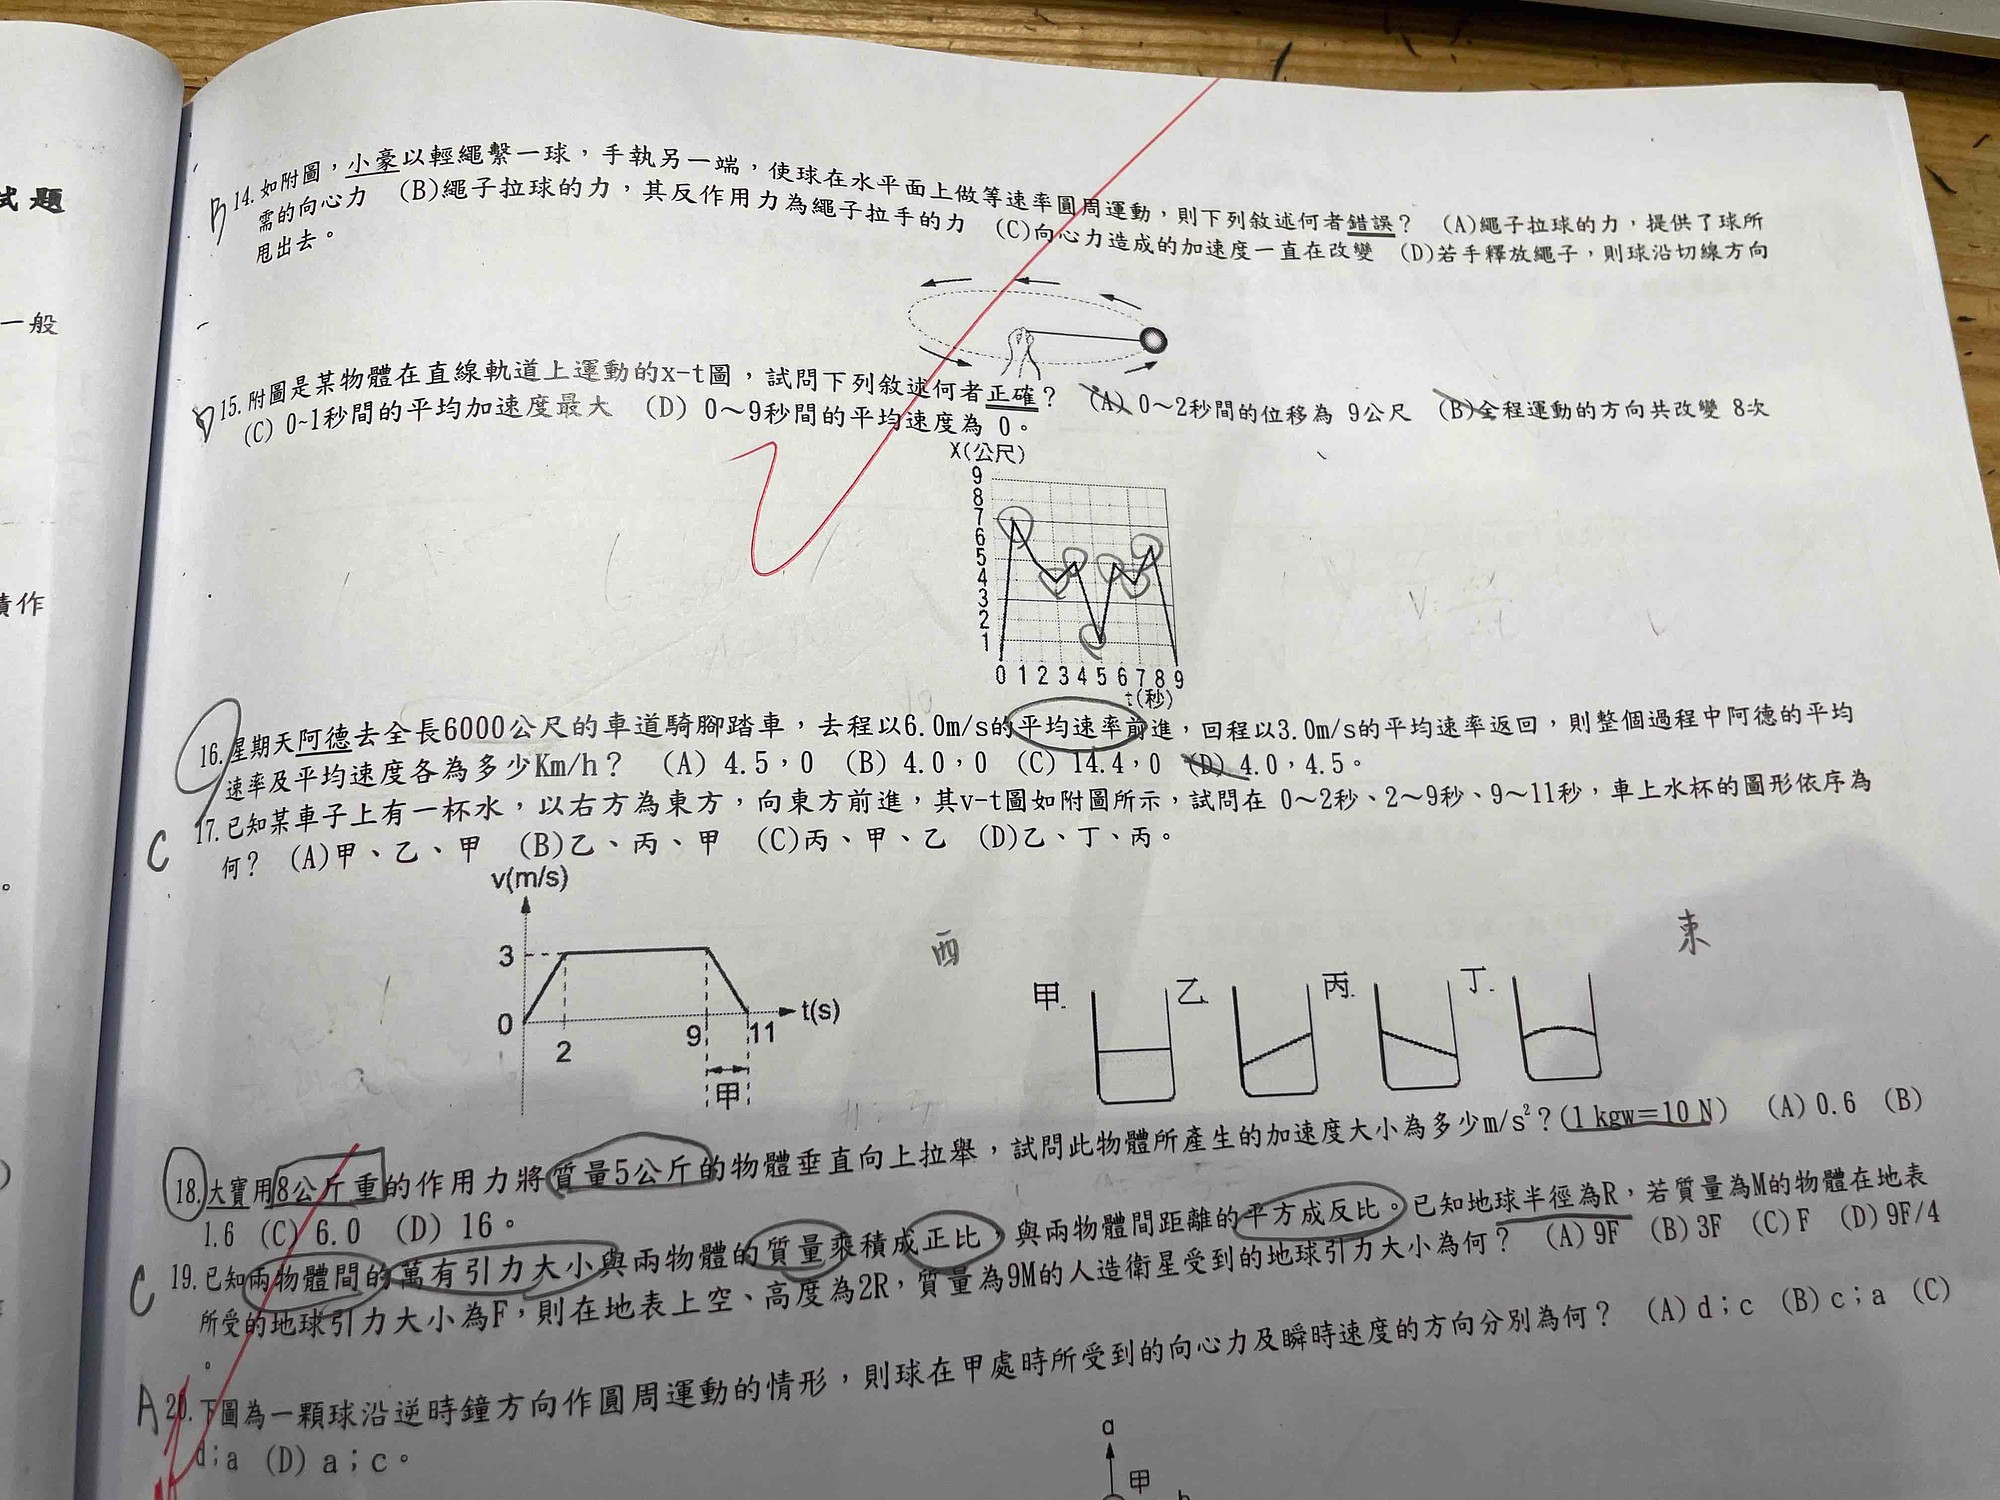 試題
一般
積作
。
B 14. 如附圖，小豪以輕繩繫一球，手執另一端，使球在水平面上做等速率圓周運動，則下列敘述何者錯誤？ (A)繩子拉球的力，提供了球所
需的向心力 (B)繩子拉球的力，其反作用力為繩子拉手的力 (C)向心力造成的加速度一直在改變 (D)若手釋放繩子，則球沿切線方向
甩出去。
D 15. 附圖是某物體在直線軌道上運動的x-t圖，試問下列敘述何者正確？ (A) 0～2秒間的位移為 9公尺 (B)全程運動的方向共改變 8次
(C) 0~1秒間的平均加速度最大 (D) 0～9秒間的平均速度為 0。
X(公尺)
9
8
7
6
5
4
3
2
1
0 1 2 3 4 5 6 7 8 9
t(秒)
16. 星期天阿德去全長6000公尺的車道騎腳踏車，去程以6.0m/s的平均速率前進，回程以3.0m/s的平均速率返回，則整個過程中阿德的平均
速率及平均速度各為多少Km/h？ (A) 4.5，0 (B) 4.0，0 (C) 14.4，0 (D) 4.0，4.5。
C 17. 已知某車子上有一杯水，以右方為東方，向東方前進，其v-t圖如附圖所示，試問在 0～2秒、2～9秒、9～11秒，車上水杯的圖形依序為
何？ (A)甲、乙、甲 (B)乙、丙、甲 (C)丙、甲、乙 (D)乙、丁、丙。
v(m/s)
3
0
2
9
11
t(s)
甲
西
東
甲. 乙 丙. 丁.
18. 大寶用8公斤重的作用力將質量5公斤的物體垂直向上拉舉，試問此物體所產生的加速度大小為多少m/s²？(1 kgw=10 N) (A) 0.6 (B)
1.6 (C) 6.0 (D) 16。
C 19. 已知兩物體間的萬有引力大小與兩物體的質量乘積成正比，與兩物體間距離的平方成反比。已知地球半徑為R，若質量為M的物體在地表
所受的地球引力大小為F，則在地表上空、高度為2R，質量為9M的人造衛星受到的地球引力大小為何？ (A) 9F (B) 3F (C) F (D) 9F/4
。
A 20. 下圖為一顆球沿逆時鐘方向作圓周運動的情形，則球在甲處時所受到的向心力及瞬時速度的方向分別為何？ (A) d；c (B) c；a (C)
d；a (D) a；c。
a
甲
b